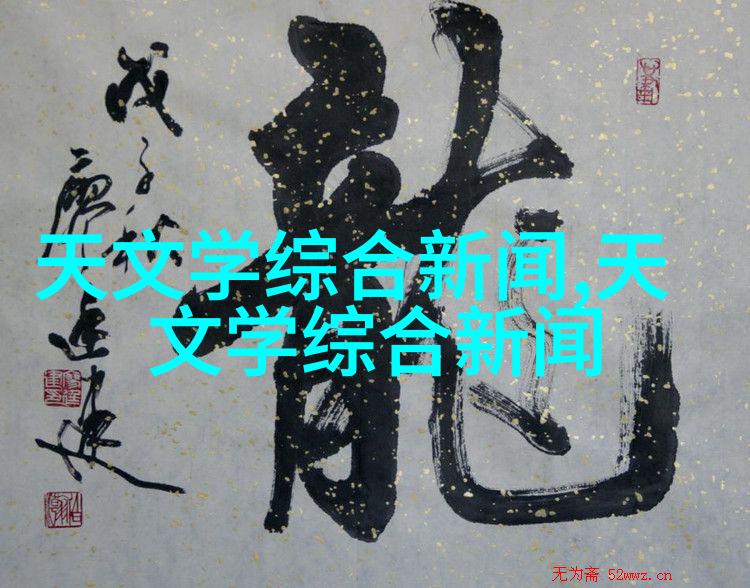 龍
戊子秋
天文学综合新闻,天
文学综合新闻
无为斋 52wwz.cn